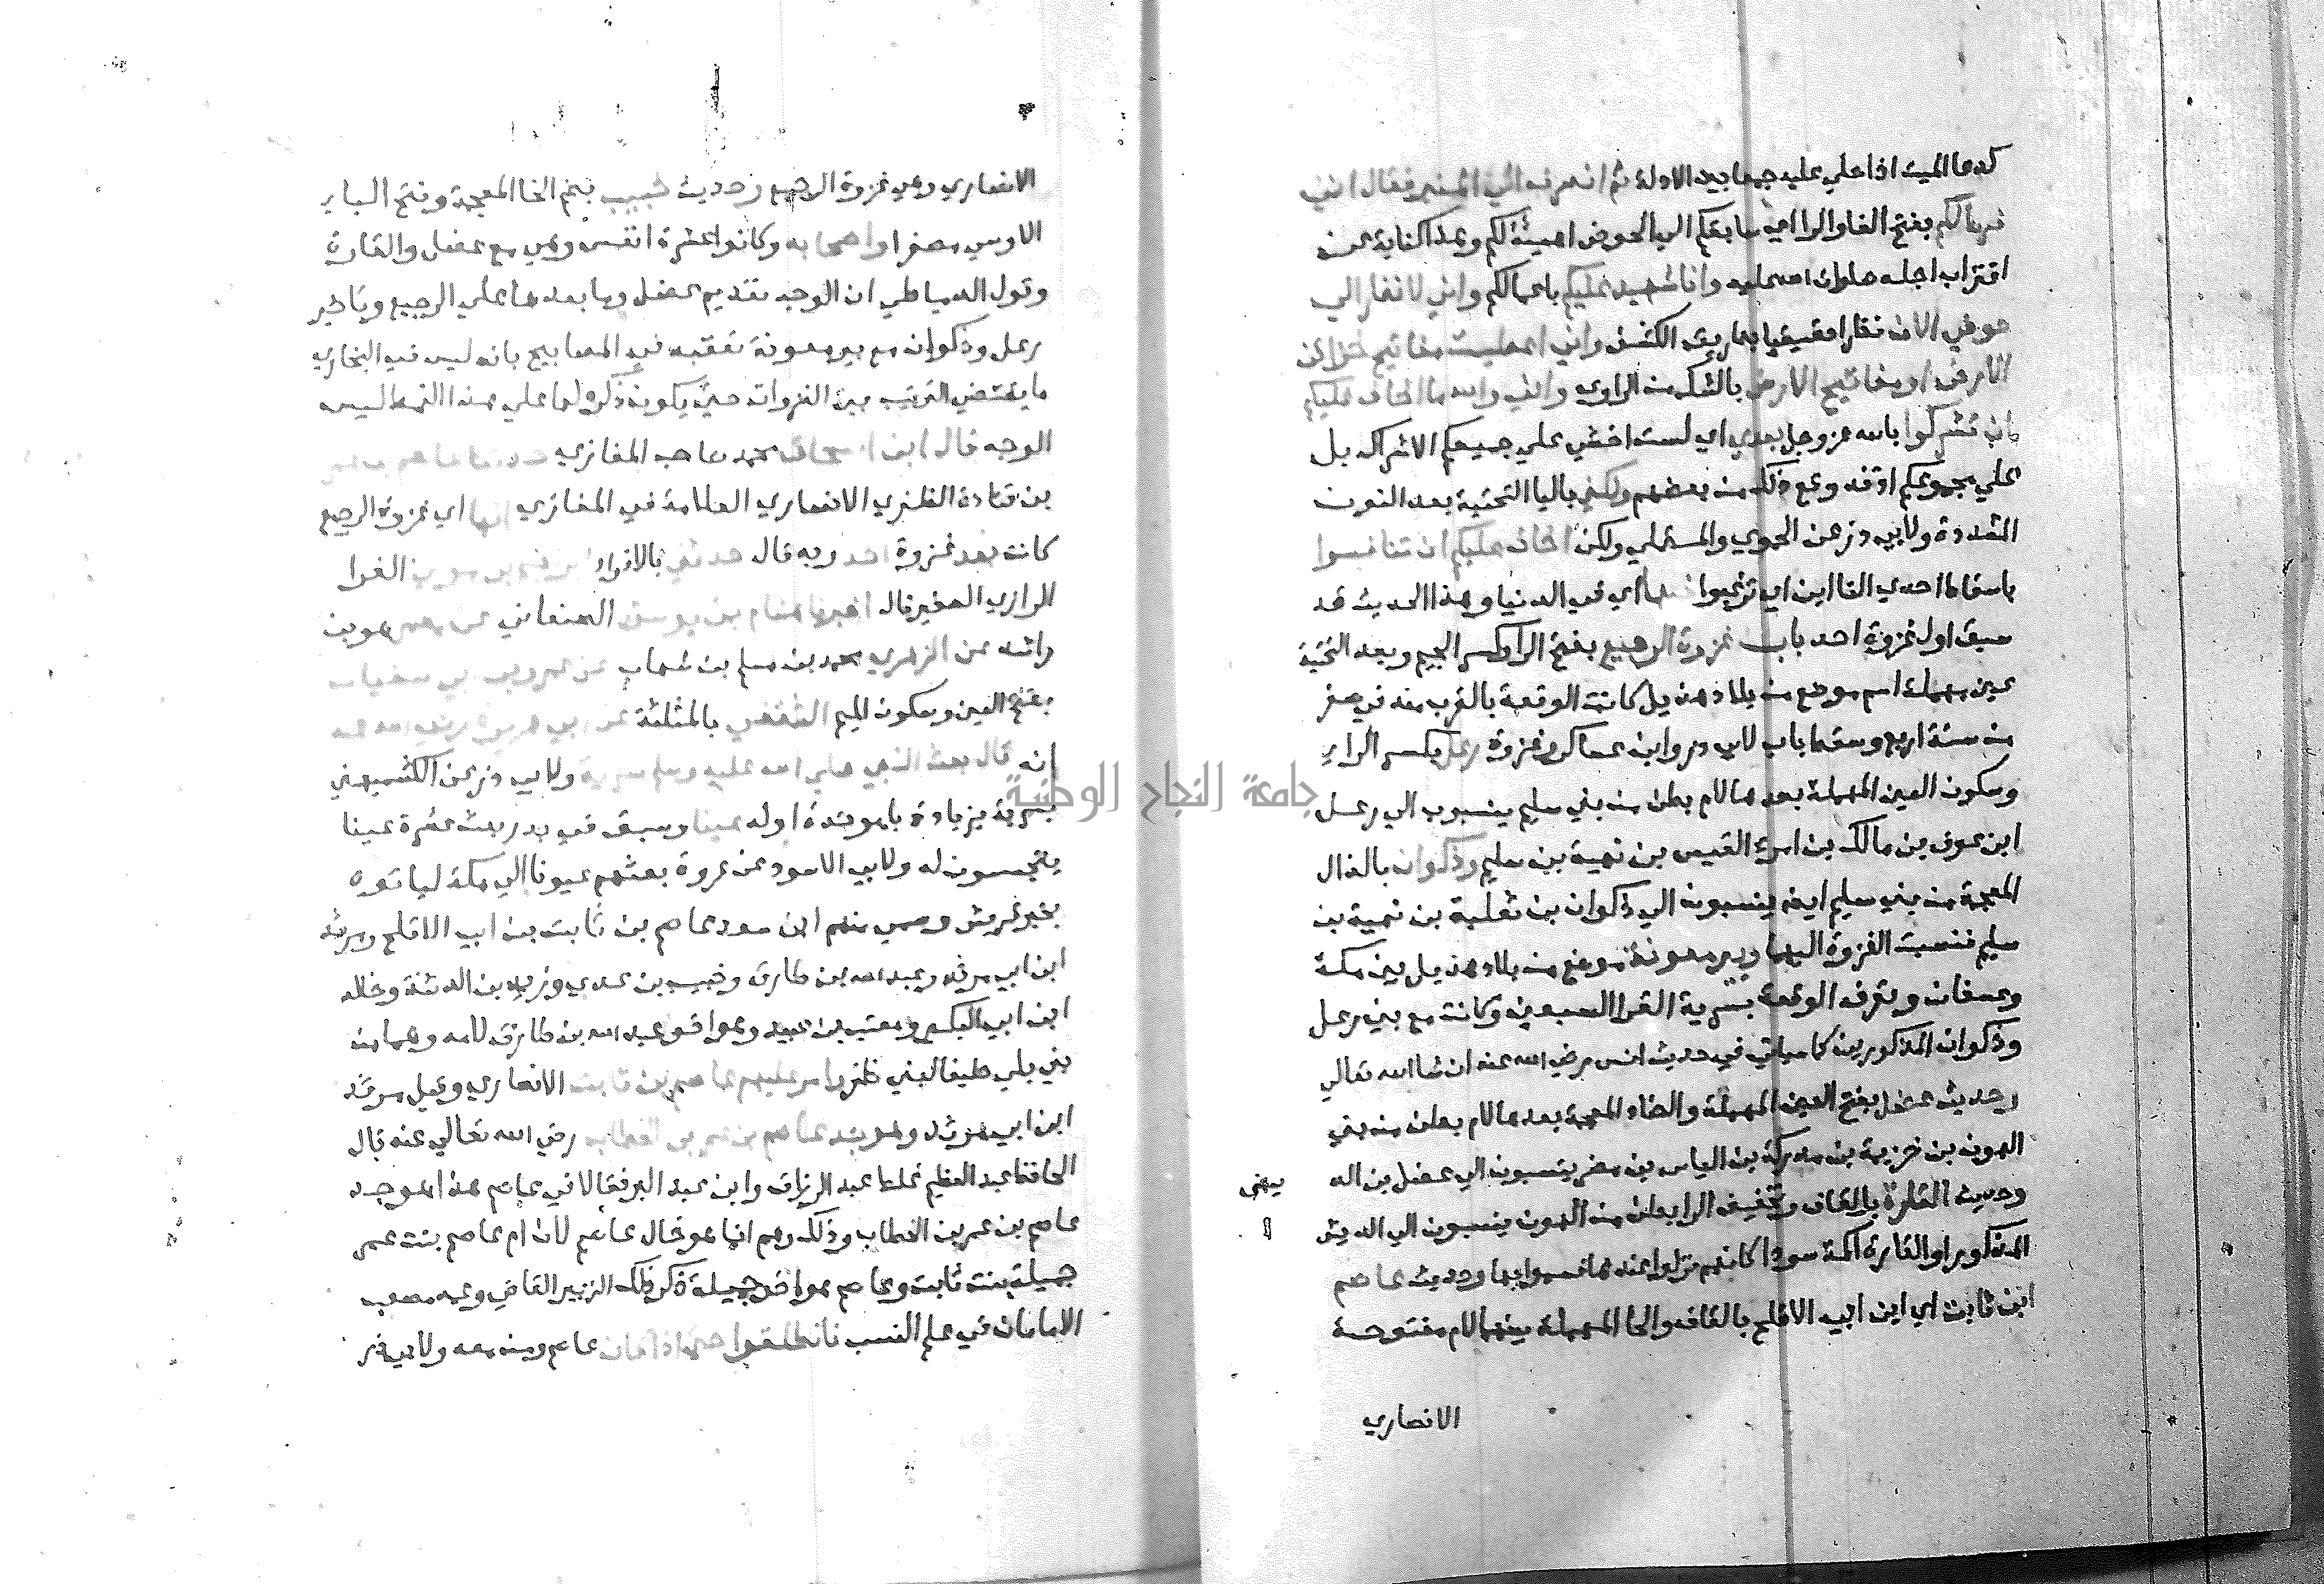 كدعا الميت اذا صلي عليه جمعا بين الادلة ثم انصرف الي المنبر فقال اني
فرط لكم بفتح الفا والرا اي سابقكم الي الحوض اهيئه لكم وهذا كناية عن
اقتراب اجله صلوات الله عليه وانا شهيد عليكم باعمالكم واني لانظر الي
حوضي الان نظرا حقيقيا بطريق الكشف واني اعطيت مفاتيح خزائن
الارض او مفاتيح الارض بالشك من الراوي واني والله ما اخاف عليكم
ان تشركوا بالله عز وجل بعدي اي لست اخشي علي جميعكم الاشراك بل
علي مجموعكم اذ قد وقع ذلك من بعضهم ولكني باليا التحتية بعد النون
المشددة ولابي ذر عن الحموي والمستملي ولكن اخاف عليكم ان تنافسوا
باسقاط احدي التاين اي ترغبوا فيها اي في الدنيا وهذا الحديث قد
سبق اول غزوة احد باب غزوة الرجيع بفتح الرا وكسر الجيم وبعد التحتية
عين مهملة اسم موضع من بلاد هذيل كانت الوقعة بالقرب منه في صفر
من سنة اربع وسقط باب لابي ذر وابن عساكر وغزوة رعل بكسر الراء
وسكون العين المهملة بعدها لام بطن من بني سليم ينسبون الي رعل
ابن عوف بن مالك بن امرئ القيس بن نهية بن سليم وذكوان بالذال
المعجمة من بني سليم ايضا ينسبون الي ذكوان بن ثعلبة بن نهية بن
سليم فنسبت الغزوة اليها وبير معونة موضع من بلاد هذيل بين مكة
وعسفان وتعرف الوقعة بسرية القرا السبعين وكانت مع بني رعل
وذكوان المذكورين كما سياتي في حديث انس رضي الله عنه ان شا الله تعالي
وحديث عضل بفتح العين المهملة والضاد المعجمة بعدها لام بطن من بني
الهون بن خزيمة بن مدركة بن الياس بن مضر ينسبون الي عضل بن الد
وحديث القارة بالقاف وتخفيف الرا بطن من الهون ينسبون الي الديش
المذكور او القارة اكمة سودا كانهم نزلوا عندها فسموا بها وحديث عاصم
ابن ثابت اي ابن ابي الاقلح بالقاف والحا المهملة بينهما لام مفتوحة
الانصاري
الانصاري وهي غزوة الرجيع وحديث خبيب بضم الخا المعجمة وفتح الباء
الاوسي مصغرا واصحابه وكانوا عشرة انفس وهي مع عضل والقارة
وقول الدمياطي ان الوجه تقديم عضل وما بعدها علي الرجيع وتاخير
رعل وذكوان مع بير معونة تعقبه في المصابيح بانه ليس في البخاري
ما يقتضي الترتيب بين الغزوات حتي يكون ذكره لها علي هذا النمط ليس
الوجه قال ابن اسحاق محمد صاحب المغازي حدثنا عاصم بن عمر
بن قتادة الظفري الانصاري العلامة في المغازي انها اي غزوة الرجيع
كانت بعد غزوة احد وبه قال حدثني بالافراد ابراهيم بن موسي الفرا
الرازي الصغير قال اخبرنا هشام بن يوسف الصنعاني عن معمر هو بن
راشد عن الزهري محمد بن مسلم بن شهاب عن عمرو بن ابي سفيان
بفتح العين وسكون الميم الثقفي بالمثلثة عن ابي هريرة رضي الله عنه
انه قال بعث النبي صلي الله عليه وسلم سرية ولابي ذر عن الكشميهني
بسرية بزيادة با موحدة اوله عينا وسبق في بدر بعث عشرة عينا
يتجسسون له ولابي الاسود عن عروة بعثهم عيونا الي مكة لياتوه
بخبر قريش وسمي منهم ابن سعد عاصم بن ثابت بن ابي الاقلح ومرثد
ابن ابي مرثد وعبد الله بن طارق وخبيب بن عدي وزيد بن الدثنة وخالد
ابن ابي البكير ومعتب بن عبيد وهو اخو عبد الله بن طارق لامه وهما من
بني بلي حليفا لبني ظفر وامر عليهم عاصم بن ثابت الانصاري وقيل مرثد
ابن ابي مرثد وهو جد عاصم بن عمر بن الخطاب رضي الله تعالي عنه قال
الحافظ عبد العظيم غلط عبد الرزاق وابن عبد البر فقالا في عاصم هذا هو جد
عاصم بن عمر بن الخطاب وذلك وهم انما هو خال عاصم لان ام عاصم بنت عمر
جميلة بنت ثابت وعاصم هو اخو جميلة ذكر ذلك الزبير القاضي وعمه مصعب
الامامان في علم النسب فانطلقوا حتي اذا كان عاصم ومن معه ولابي ذر
جامعة النجاح الوطنية